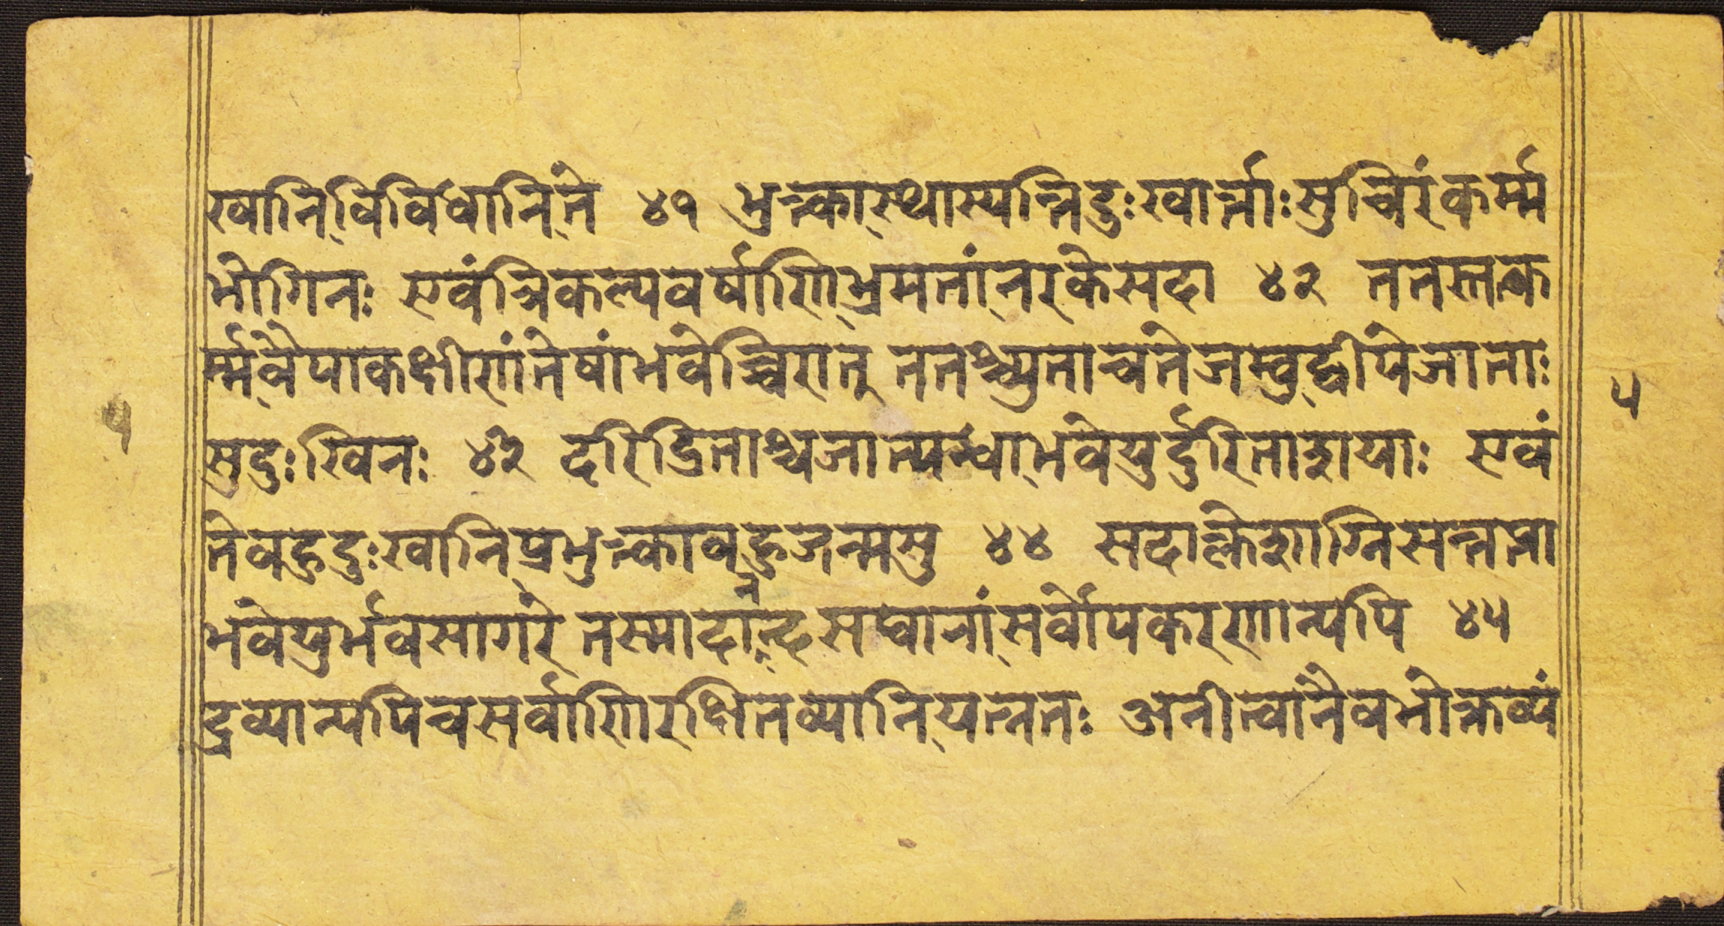 खानिविविधानिते ४१ भुक्त्कास्थास्यन्तिदुःखार्त्ताःसुचिरंकर्म्म
भोगिनः एवंत्रिकल्पवर्षाणिभ्रमतांनरकेसदा ४२ ततस्तत्क
र्म्मवैपाकक्षीणांतेषांभवेच्चिरात् ततश्च्युताश्चतेजम्बुद्वीपेजाताः
सुदुःखिनः ४३ दरिद्रिताश्चजात्यन्धाभवेयुर्दुरिताशयाः एवं
तेबहुदुःखानिप्रभुक्त्काबहुजन्मसु ४४ सदाक्लेशाग्निसन्तप्ता
भवेयुर्भवसागरे तस्मादानन्दसघानांसर्वोपकरणान्यपि ४५
द्रव्यान्यपिचसर्वाणिरक्षितव्यानियत्नतः अनीत्वानैवभोक्तव्यं
५
५